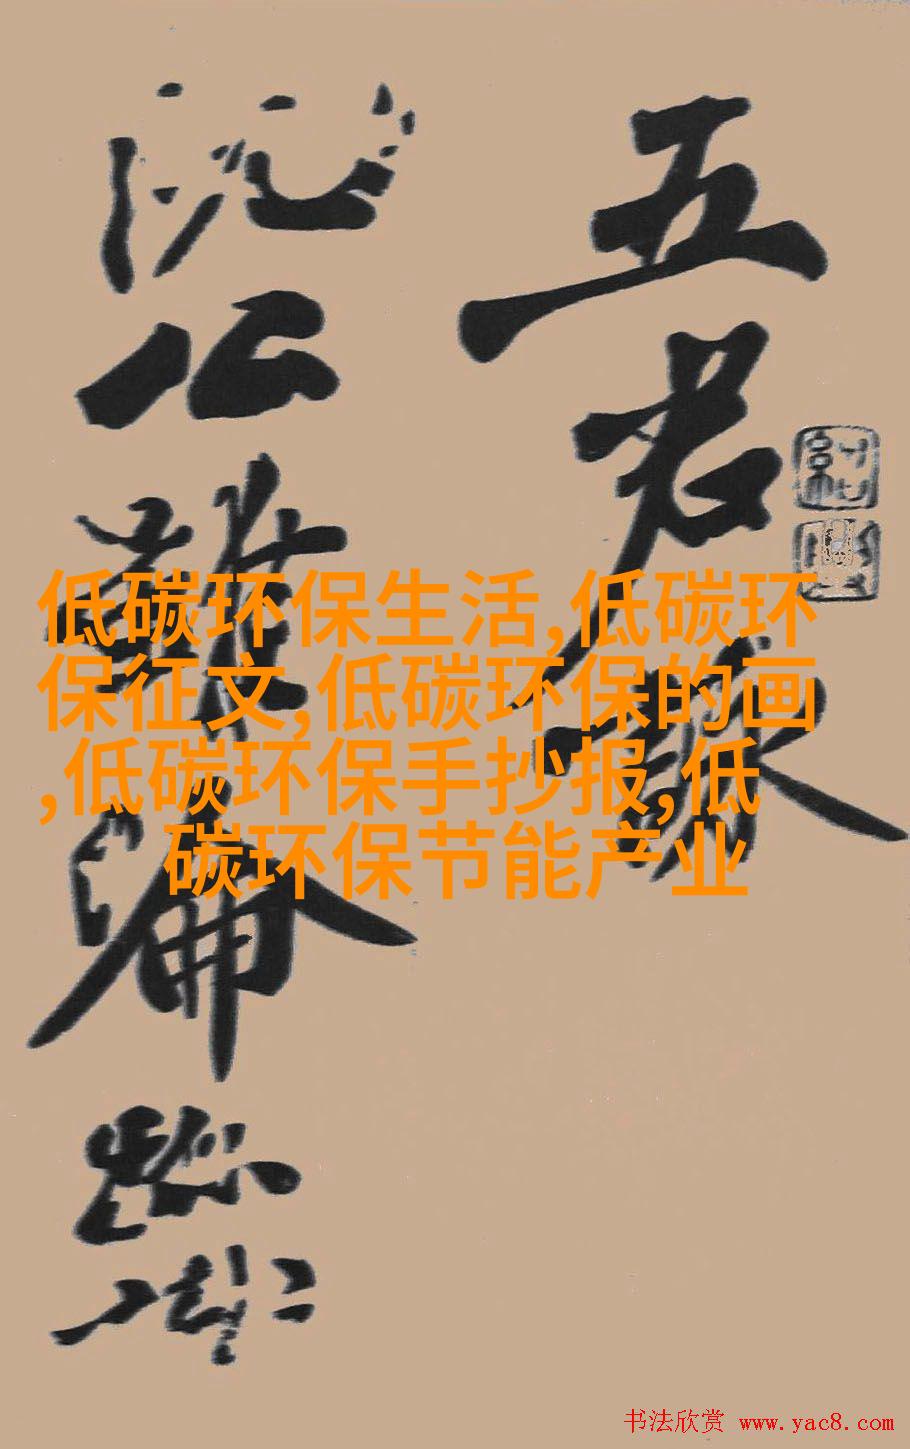 五君詠
阮公雖淪跡
低碳环保生活,低碳环
保征文,低碳环保的画
,低碳环保手抄报,低
碳环保节能产业
书法欣赏 www.yac8.com